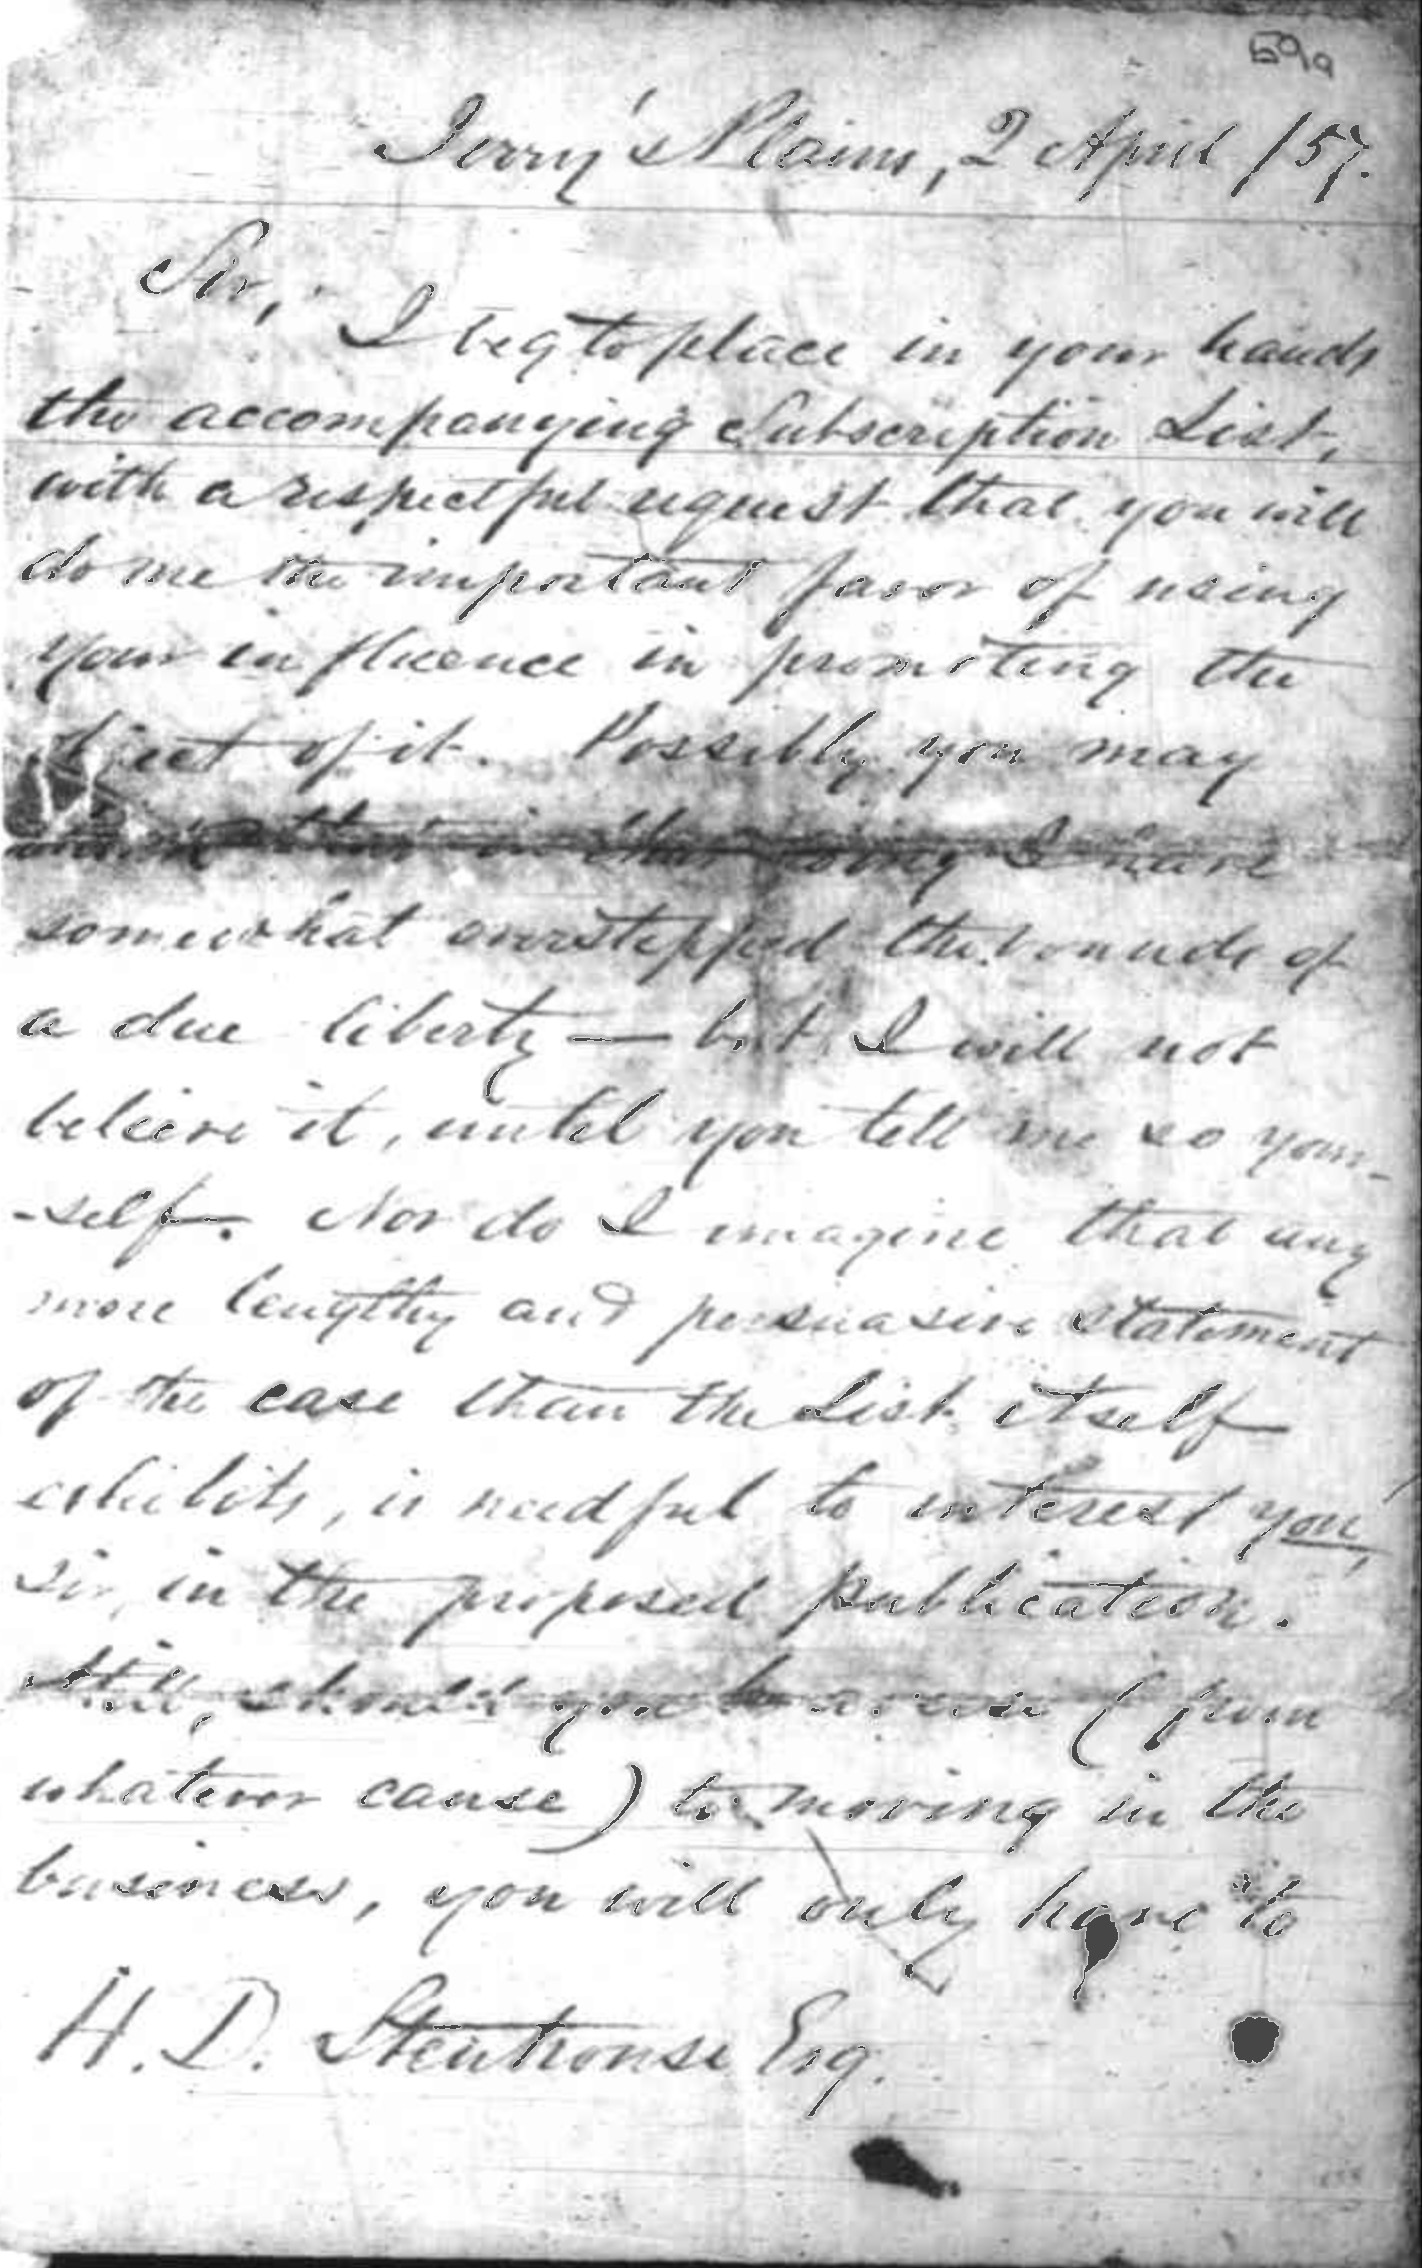 59a
Jerry's Plains, 2 April /57.
Sir,
I beg to place in your hands
the accompanying Subscription List,
with a respectful request that you will
do me the important favor of using
your influence in promoting the
object of it. Possibly you may
that in thus doing I have
somewhat overstepped the bounds of
a due liberty — but I will not
beleive it, until you tell me so your-
-self. Nor do I imagine that any
more lengthy and persuasive statement
of the case than the List itself
exhibits, is needful to interest you,
sir, in the proposed publication.
Still, should you be averse (from
whatever cause) to moving in the
business, you will only have to
H. D. Stenhouse Esq.